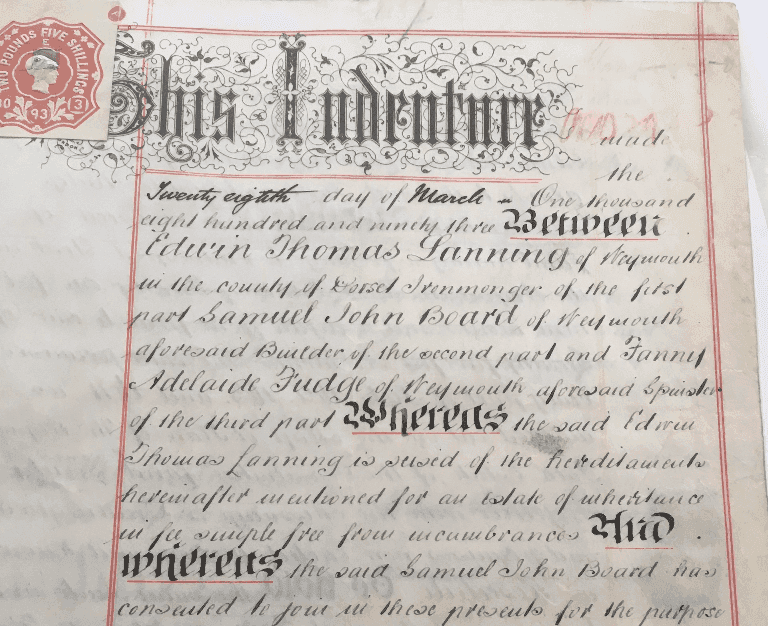 TWO POUNDS FIVE SHILLINGS
E
30 93 3
This Indenture
made
the
Twenty eighth day of March One thousand
eight hundred and ninety three Between
Edwin Thomas Lanning of Weymouth
in the county of Dorset Ironmonger of the first
part Samuel John Board of Weymouth
aforesaid Builder of the second part and Fanny
Adelaide Fudge of Weymouth aforesaid Spinster
of the third part Whereas the said Edwin
Thomas Lanning is seised of the hereditaments
hereinafter mentioned for an estate of inheritance
in fee simple free from incumbrances And
whereas the said Samuel John Board has
consented to join in these presents for the purpose